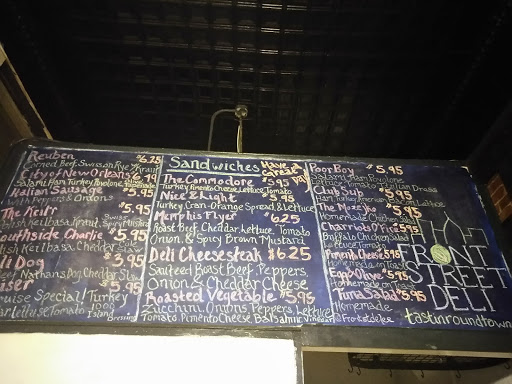 Reuben $6.25
Corned Beef, Swiss on Rye
City of New Orleans
Salami, Ham, Turkey, Provolone
Italian Sausage $5.95
With Peppers & Onions
$5.95
Southside Charlie $5.95
Kielbasa, Cheddar
Dog $3.95
Beef Nathans Dog, Cheddar, Slaw
$5.95
Special! Turkey
Lettuce, Tomato Island
Dressing
Sandwiches
Have a great day
The Commodore $5.95
Turkey, Pimento Cheese, Lettuce, Tomato
Nice & Light 5.95
Turkey, Cran-Orange Spread & Lettuce
Memphis Flyer $6.25
Roast Beef, Cheddar, Lettuce, Tomato
Onion & Spicy Brown Mustard
Deli Cheesesteak $6.25
Sauteed Roast Beef, Peppers
Onion & Cheddar Cheese
Roasted Vegetable $5.95
Zucchini, Onions, Peppers, Lettuce
Tomato, Pimento Cheese, Balsamic Vinegar
Poor Boy $5.95
Club Sub $5.95
The Mazeko $5.95
Homemade Chicken
Charriots O'Fire $5.95
Buffalo Chicken Salad
Lettuce, Tomato
Pimento Cheese $5.95
Homemade on Toast
Egg & Olive $5.95
Homemade on Toast
Tuna Salad $5.95
Homemade
FRONT
STREET
DELI
tastinroundtown